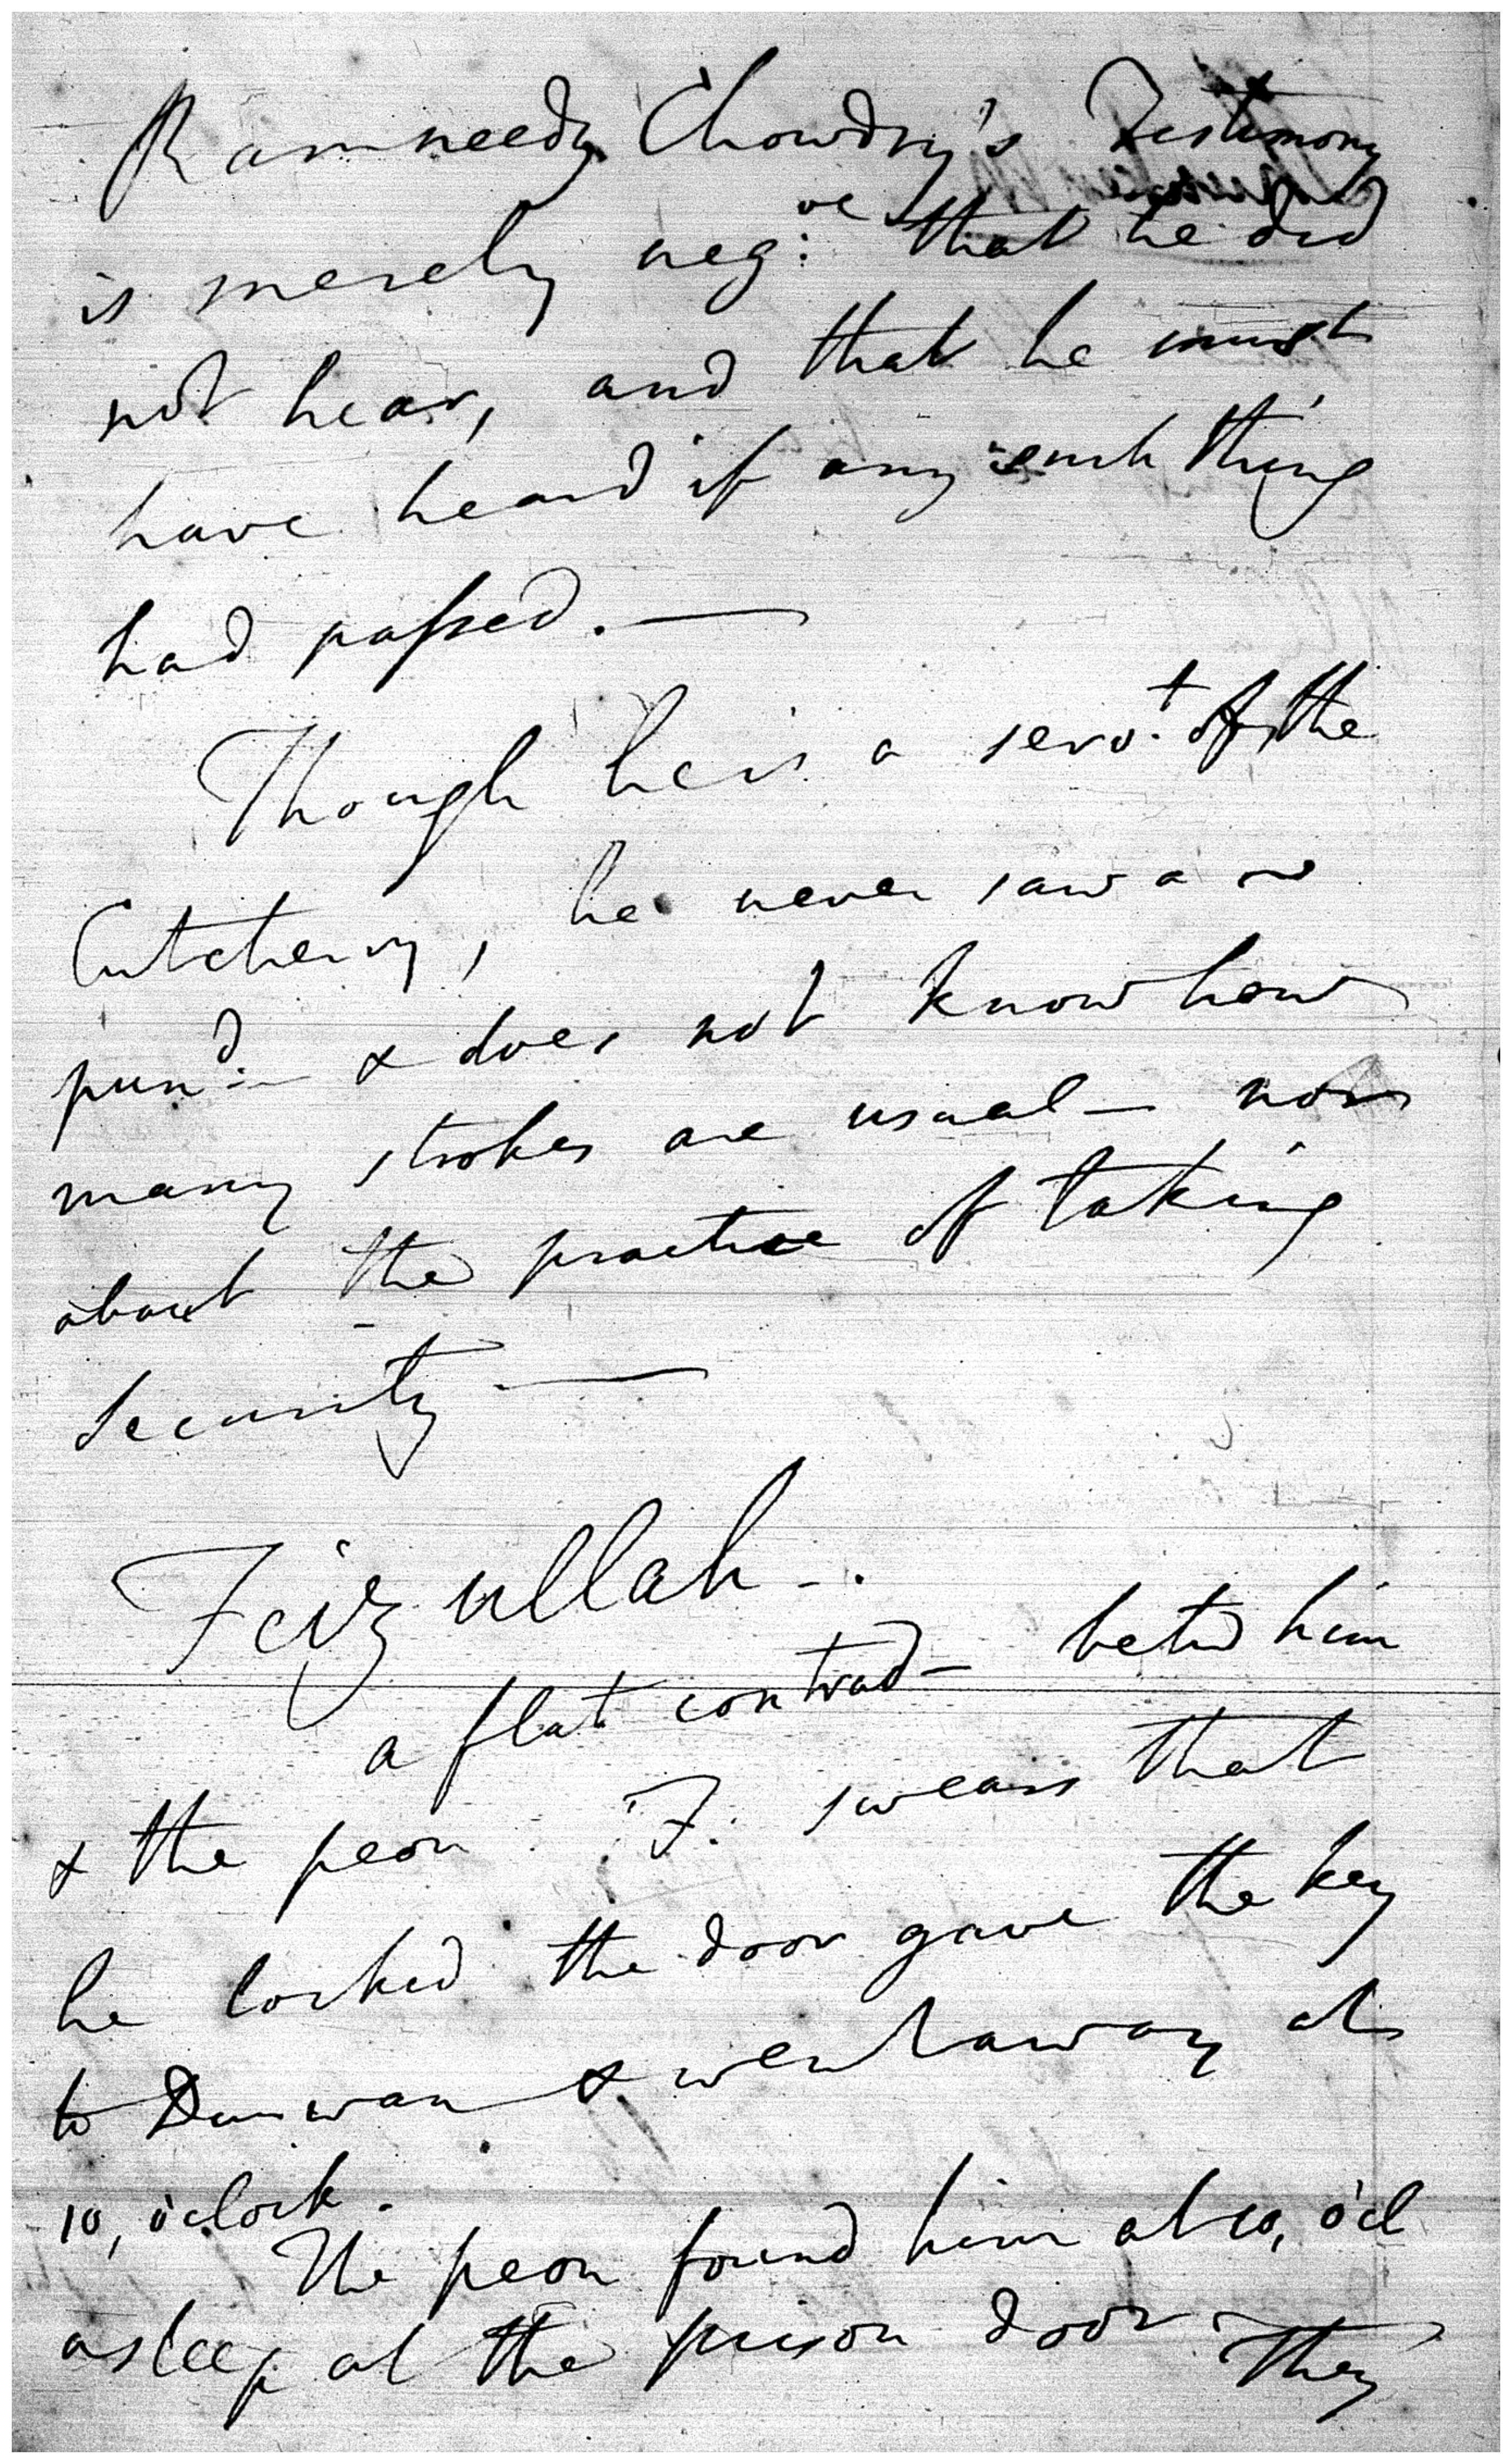 Ramneedy Chowdry's Testimony
is merely neg:ve that he did
not hear, and that he must
have heard if any such thing
had passed. —
Though he is a servt. of the
Cutcherry, he never saw a
pund:— & does not know how
many strokes are usual — nor
about the practice of taking
security —
Feizullah —.
a flat contrad— betw him
& the peon. F. swears that
he locked the door gave the key
to Durwan & went away at
10, o'clock.
The peon found him at 10, o'cl
asleep at the prison door — They